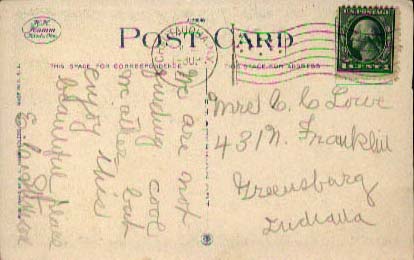 H.H. Hamm
POST CARD
THIS SPACE FOR CORRESPONDENCE
THIS SPACE FOR ADDRESS
1 CENT 1
We are not
finding cool
weather but
enjoy this
beautiful place
Mrs C. C. Lowe
431 N. Franklin
Greensburg
Indiana